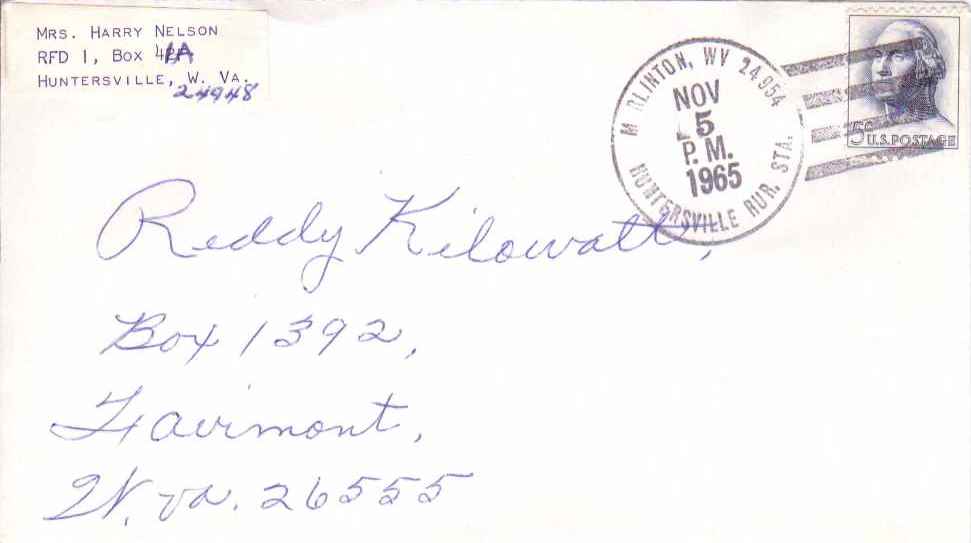 MRS. HARRY NELSON
RFD 1, BOX 41A
HUNTERSVILLE, W. VA.
24948
MARLINTON, WV 24954
NOV
5
P.M.
1965
HUNTERSVILLE RUR. STA.
5¢ U.S. POSTAGE
Reddy Kilowatt,
Box 1392,
Fairmont,
W. Va. 26555